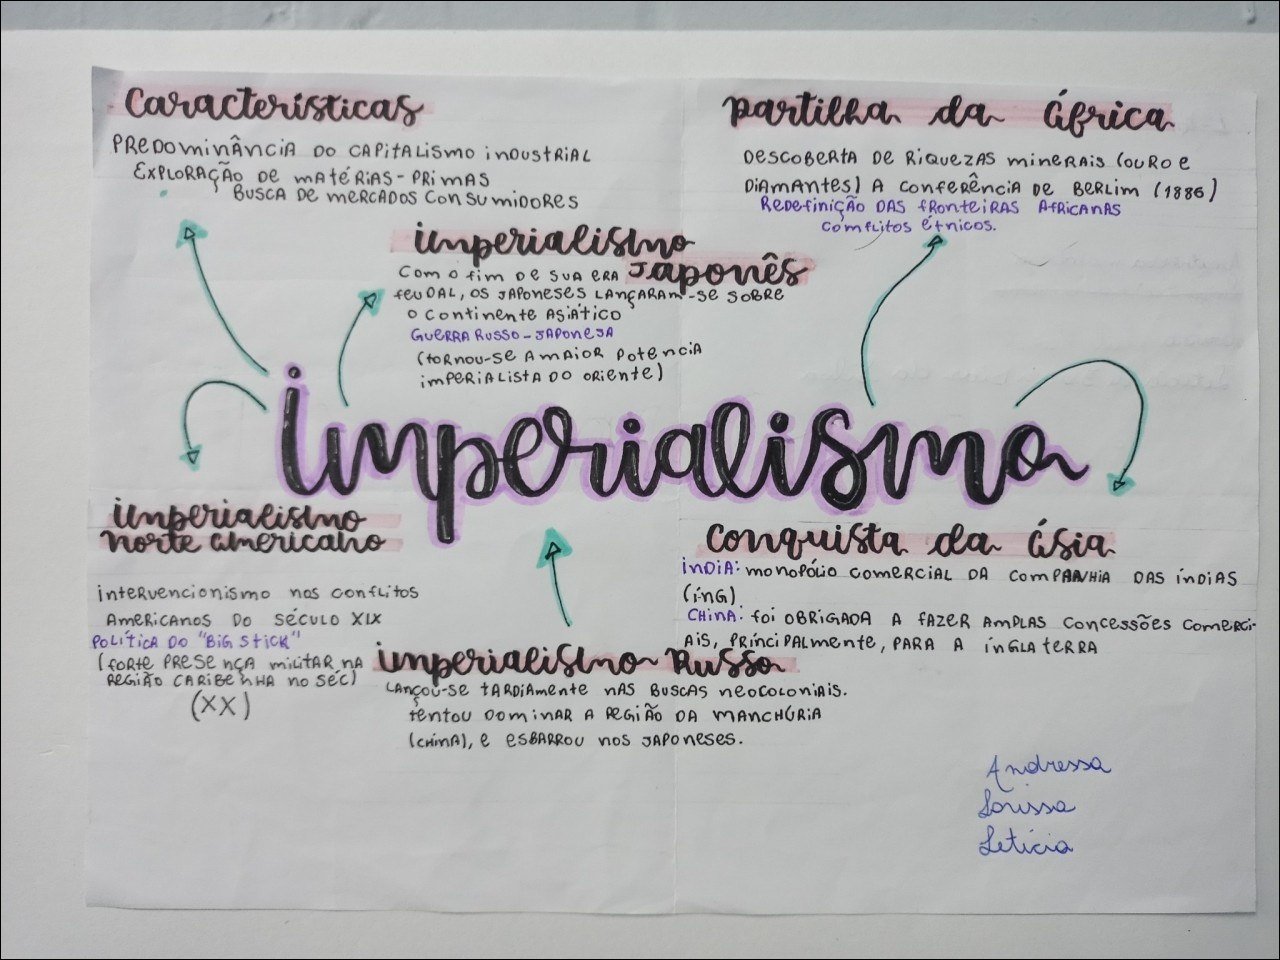 Características
PREDOMINÂNCIA DO CAPITALISMO INDUSTRIAL
EXPLORAÇÃO DE MATÉRIAS-PRIMAS
BUSCA DE MERCADOS CONSUMIDORES
Partilha da África
DESCOBERTA DE RIQUEZAS MINERAIS (OURO E
DIAMANTES) A CONFERÊNCIA DE BERLIM (1886)
REDEFINIÇÃO DAS FRONTEIRAS AFRICANAS
CONFLITOS ÉTNICOS.
imperialismo
Japonês
COM O FIM DE SUA ERA
FEUDAL, OS JAPONESES LANÇARAM-SE SOBRE
O CONTINENTE ASIÁTICO
GUERRA RUSSO-JAPONESA
(TORNOU-SE A MAIOR POTENCIA
IMPERIALISTA DO ORIENTE)
imperialismo
imperialismo
norte americano
INTERVENCIONISMO NOS CONFLITOS
AMERICANOS DO SÉCULO XIX
POLÍTICA DO "BIG STICK"
(FORTE PRESENÇA MILITAR NA
REGIÃO CARIBENHA NO SÉC)
(XX)
conquista da Ásia
ÍNDIA: MONOPÓLIO COMERCIAL DA COMPANHIA DAS ÍNDIAS
(ING)
CHINA: FOI OBRIGADA A FAZER AMPLAS CONCESSÕES COMERCI-
AIS, PRINCIPALMENTE, PARA A INGLATERRA
imperialismo Russo
LANÇOU-SE TARDIAMENTE NAS BUSCAS NEOCOLONIAIS.
TENTOU DOMINAR A REGIÃO DA MANCHÚRIA
(CHINA), E ESBARROU NOS JAPONESES.
Andressa
Larissa
Letícia